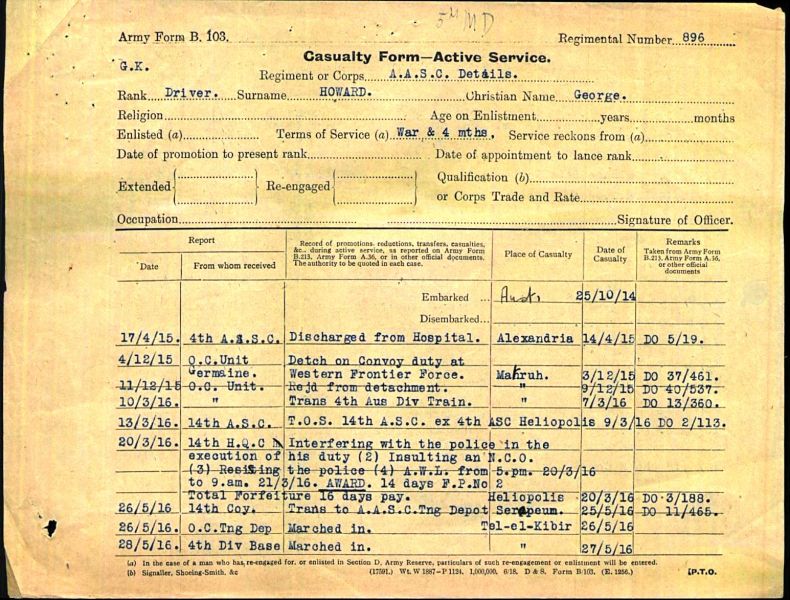 5th MD
Army Form B. 103. Regimental Number 896
Casualty Form—Active Service.
G.K.
Regiment or Corps A.A.S.C. Details.
Rank Driver. Surname HOWARD. Christian Name George.
Religion Age on Enlistment years months
Enlisted (a) Terms of Service (a) War & 4 mths. Service reckons from (a)
Date of promotion to present rank Date of appointment to lance rank
Extended Re-engaged Qualification (b)
or Corps Trade and Rate
Occupation Signature of Officer.
Report
Date From whom received
Record of promotions, reductions, transfers, casualties,
&c., during active service, as reported on Army Form
B.213, Army Form A.36, or in other official documents.
The authority to be quoted in each case.
Place of Casualty
Date of
Casualty
Remarks
Taken from Army Form
B.213, Army Form A.36,
or other official
documents
Embarked ... Aust. 25/10/14
Disembarked...
17/4/15. 4th A.S.C. Discharged from Hospital. Alexandria 14/4/15 DO 5/19.
4/12/15 O.C.Unit Detch on Convoy duty at
Germaine. Western Frontier Force. Matruh. 3/12/15 DO 37/461.
11/12/15 O.C. Unit. Rejd from detachment. " 9/12/15 DO 40/537.
10/3/16. " Trans 4th Aus Div Train. " 7/3/16 DO 13/360.
13/3/16. 14th A.S.C. T.O.S. 14th A.S.C. ex 4th ASC Heliopolis 9/3/16 DO 2/113.
20/3/16. 14th H.Q.C Interfering with the police in the
execution of his duty (2) Insulting an N.C.O.
(3) Resisting the police (4) A.W.L. from 5.pm. 20/3/16
to 9.am. 21/3/16. AWARD. 14 days F.P.No 2
Total Forfeiture 16 days pay. Heliopolis 20/3/16 DO 3/188.
26/5/16 14th Coy. Trans to A.A.S.C.Tng Depot Serapeum. 25/5/16 DO 11/465.
26/5/16. O.C.Tng Dep Marched in. Tel-el-Kibir 26/5/16
28/5/16. 4th Div Base Marched in. " 27/5/16
(a) In the case of a man who has re-engaged for, or enlisted in Section D, Army Reserve, particulars of such re-engagement or enlistment will be entered.
(b) Signaller, Shoeing-Smith, &c (17591.) Wt. W 1887—P 1124. 1,000,000. 6/18. D & S. Form B/103. (E. 1256.) [P.T.O.